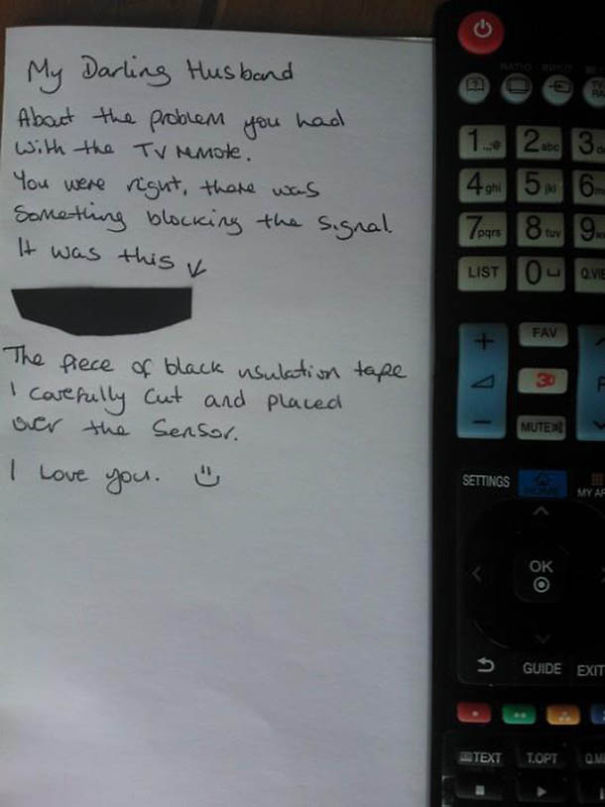 My Darling Husband
About the problem you had
with the TV remote.
You were right, there was
Something blocking the signal
It was this
The piece of black insulation tape
I carefully cut and placed
over the Sensor.
I Love you.
RATIO INPUT
1 .,;@ 2 abc 3
4 ghi 5 jkl 6
7 pqrs 8 tuv 9
LIST 0 Q.VIE
+ FAV
3D
- MUTE
SETTINGS HOME MY AP
OK
GUIDE EXIT
TEXT T.OPT Q.M